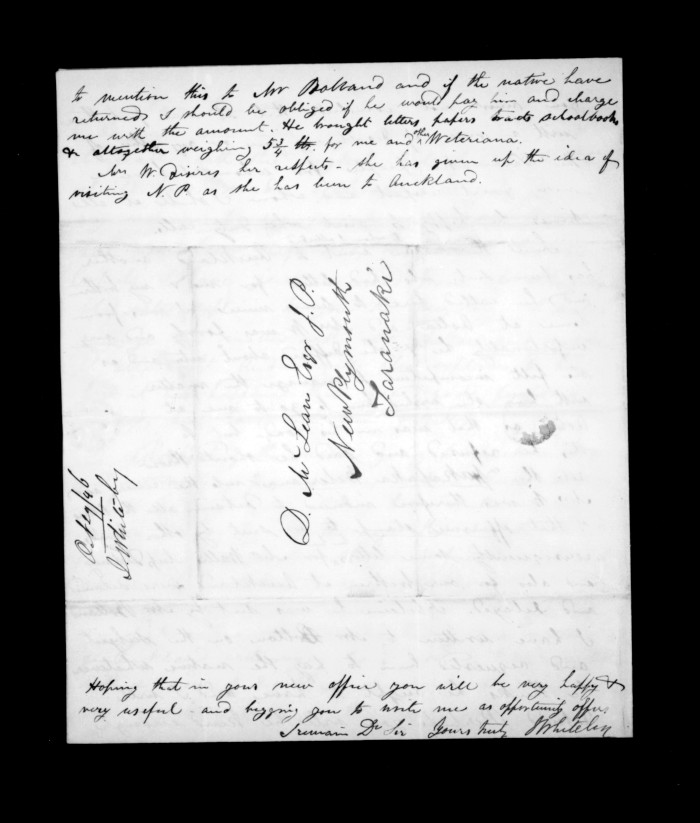 to mention this to Mr Bolland and if the native have
returned I should be obliged if he would pay him and charge
me with the amount. He brought letters papers tracts schoolbooks
& altogether weighing 5¼ lb. for me and other Weteriana.
Mrs W. desires her respects - she has given up the idea of
visiting N. P. as she has been to Auckland.
D. McLean Esqr J. P.
New Plymouth
Taranaki
J. Whiteley
Hoping that in your new office you will be very happy &
very useful and begging you to write me as opportunity offers.
I remain Dr Sir Yours truly J Whiteley